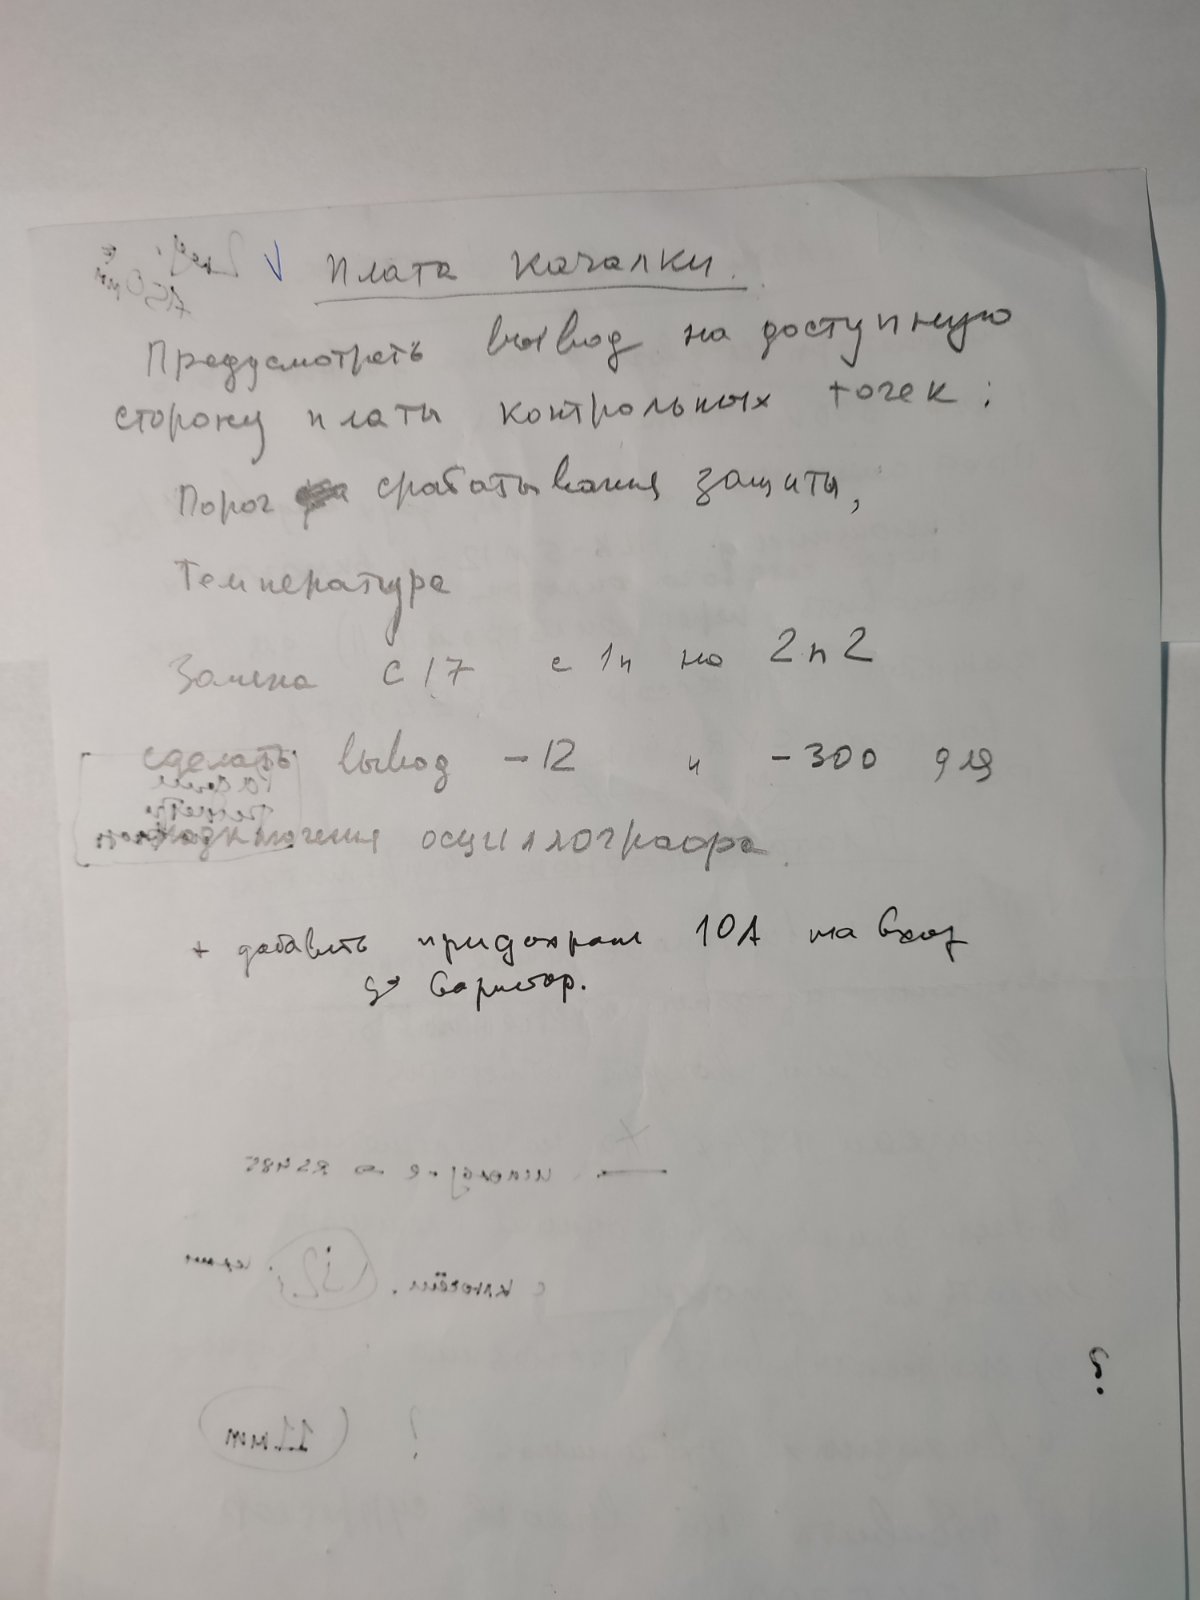 Плата качалки.
Предусмотреть вывод на доступную
сторону платы контрольных точек:
Порог срабатывания защиты,
Температура
Замена С17 с 1n на 2n2
сделать вывод -12 и -300 для
подключения осциллографа.
+ добавить придохран 10А на вход
и варистор.
— использ-е RS485
с ключём.
(11 шт ?
?